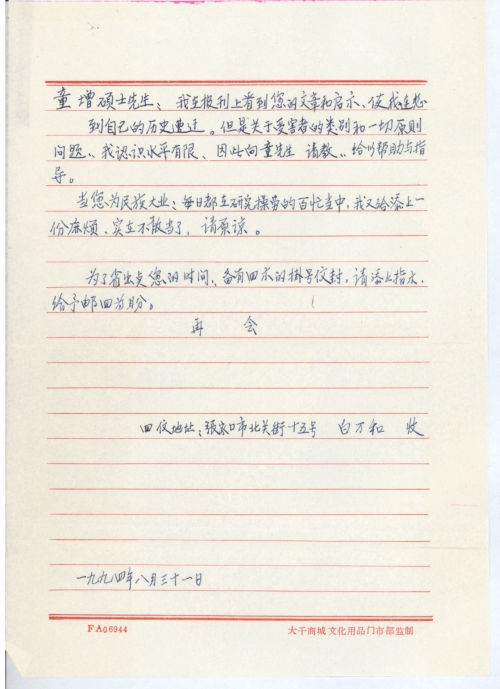 童增硕士先生:我在报刊上看到您的文章和启示、使我连想
到自己的历史遭迂。但是关于受害者的类别和一切原则
问题、我认识水平有限、因此向童先生请教、给以帮助与指
导。
当您为民族大业、每日都在研究操劳的百忙当中,我又给添上一
份麻烦、实在不敢当了,请原谅。
为了省出点您的时间、备有回来的掛号信封,请添上指大、
给予邮回为盼。
再 会
回信地址:张家口市北关街十五号 白万和 收
一九九四年八月三十一日
FA06944 大千商城文化用品门市部监制